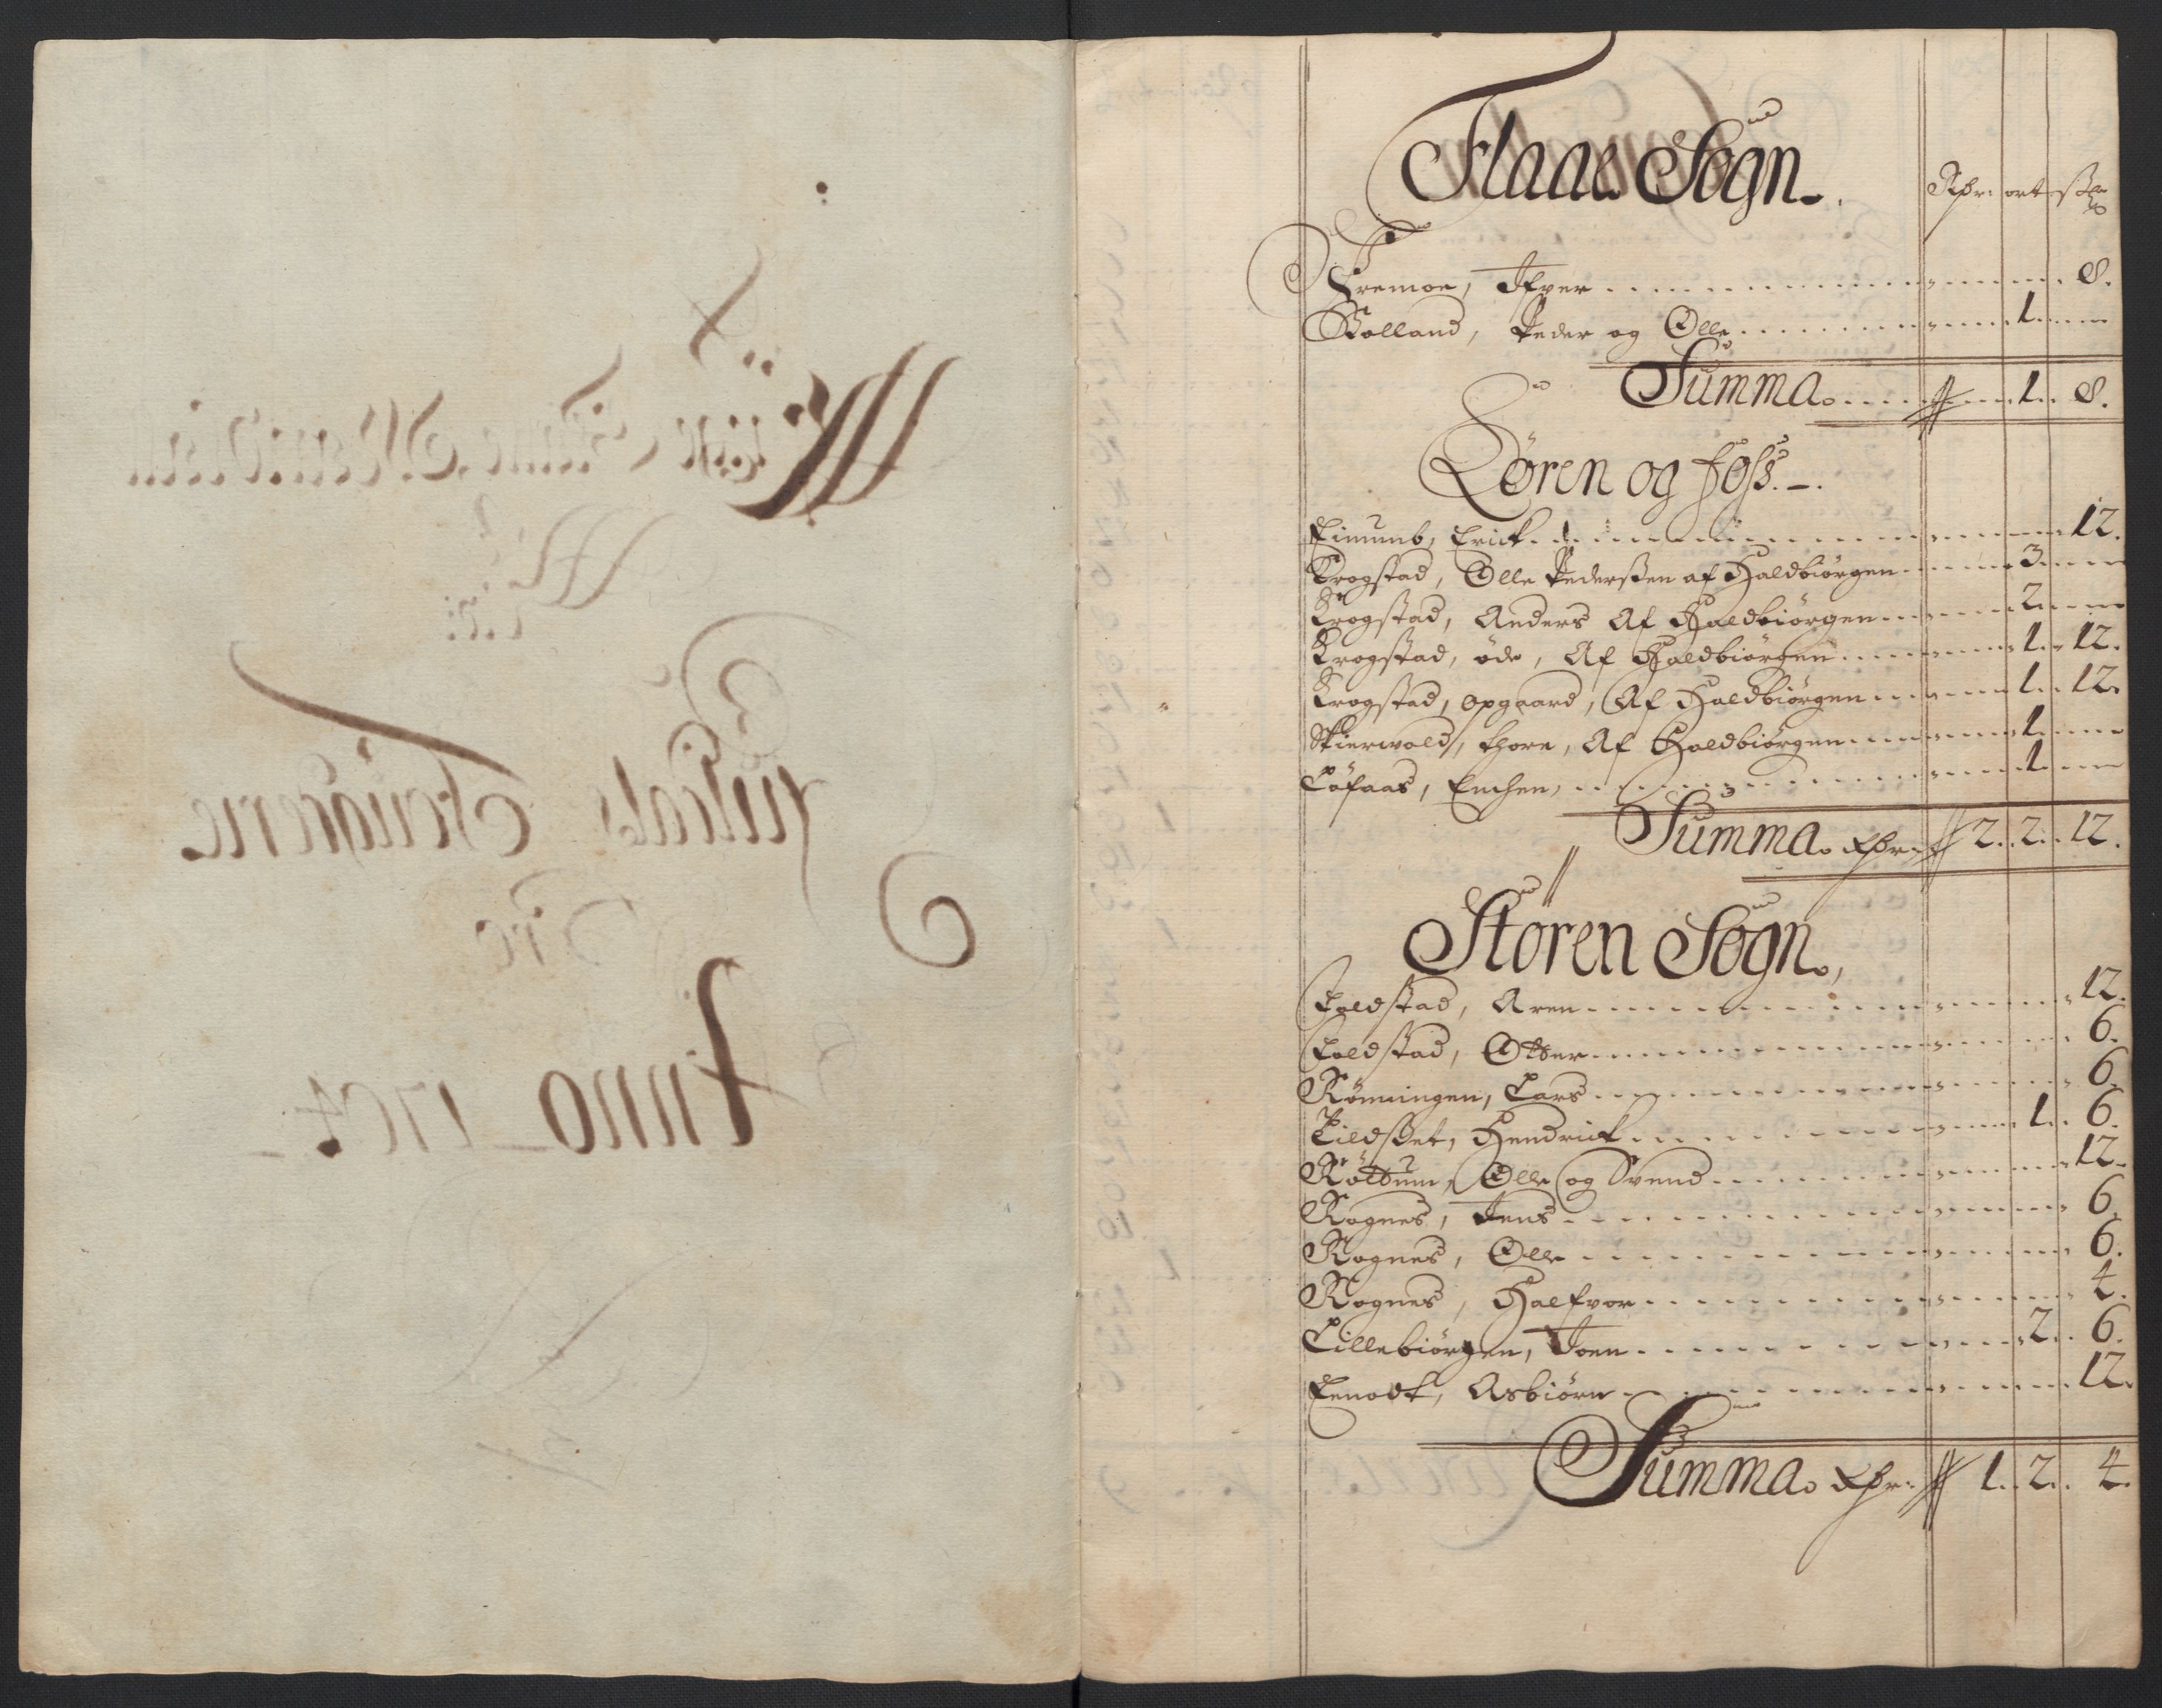 Flaae Sogn.
Rdr: ort ß
Fremoe, Ifver 8.
Volland, Peder og Olle 1.
Summa. 1. 8.
Løren og Foss.
Eimumb, Erick 12.
Krogstad, Olle Pederßen af Haldbiørgen 3.
Krogstad, Anders Af Haldbiørgen 2.
Krogstad, øde, Af Haldbiørgen 1. 12.
Krogstad, opgaard, Af Haldbiørgen 1. 12.
Skierwold, Thore, Af Haldbiørgen 1.
Løfaas, Enchen, 1.
Summa. Rdr. 2. 2. 12.
Støren Sogn.
Foldstad, Aren 12.
Foldstad, Otter 6.
Rønningen, Lars 6.
Kildset, Hendrick 1. 6.
Røttum, Olle og Svend 12.
Rognes, Jens 6.
Rognes, Olle 6.
Rognes, Halfvor 4.
Lillebiørgen, Joen 2. 6.
Enodt, Asbiørn 12.
Summa. Rdr. 1. 2. 4.
Anno 1704